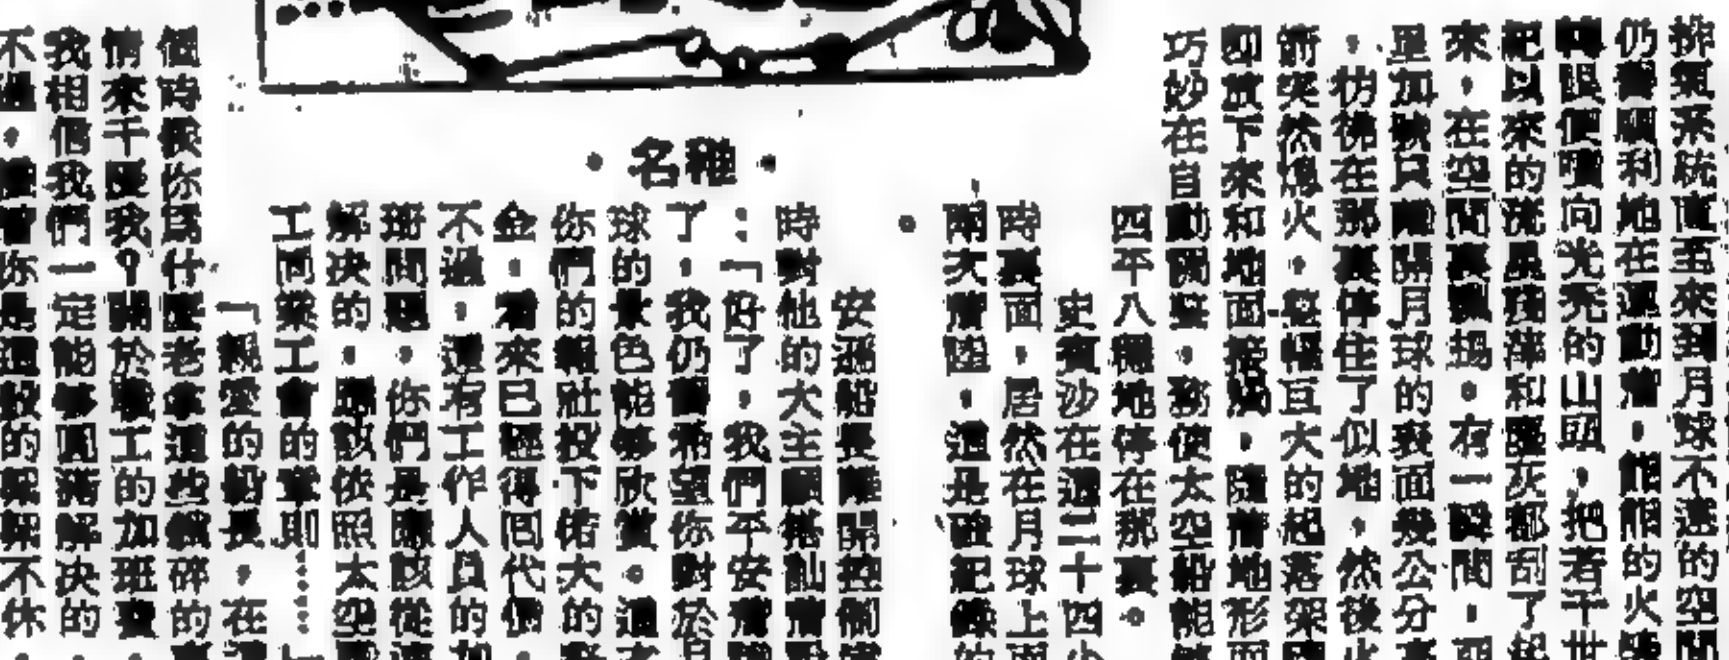 排氣系統直至來到月球不遠的空間
仍舊順利地在運動着，熊熊的火
轉眼便噴向光禿的山頭，把若干世
把以來的 和 灰都刮了起
來，在空間裏飄揚。有一瞬間，
里加號只離開月球的表面幾公分高
，彷彿在那裏停住了似地，然後火
箭突然熄火，整幅巨大的起落架
即放下來和地面接觸，隨着地形而
巧妙在自動調整，務使太空船能
四平八穩地停在那裏。
史賓沙在這二十四小
時裏面，居然在月球上面
兩次着陸，這是破記錄的
•
• 名稚 •
安遜船長離開控制
時對他的大主顧
：「好了，我們平安着陸
了，我仍舊希望你對於月
球的景色能够欣賞。這
你們的報社投下偌大的
金，看來已經得回代價，
不過，還有工作人員的加
班問題，你們是應該從
解決的，應該依照太空
工同業工會的章則……」
「親愛的船長，在這
個時候你爲什麼老拿這些瑣碎的
情來干擾我？關於職工的加班費
我相信我們一定能够圓滿解決的
不過，儘管你是這般的 不休